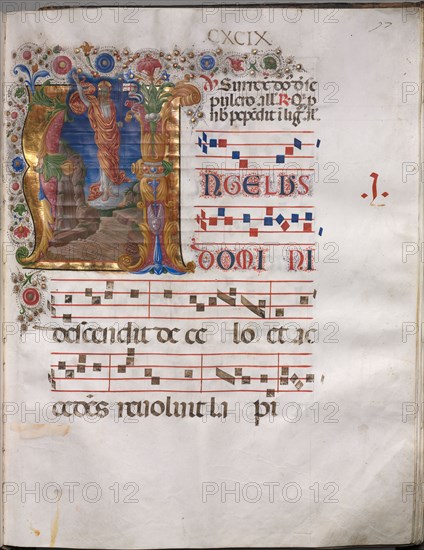 CXCIX
℣ Surrex dō dse
pulcro all. ℟. Q̄ p
nb pepēdit ilig all.
NGELUS
DOMI NI
descendit de ce lo et ac
cedēs revoluit la pi
1.
PHOTO 12